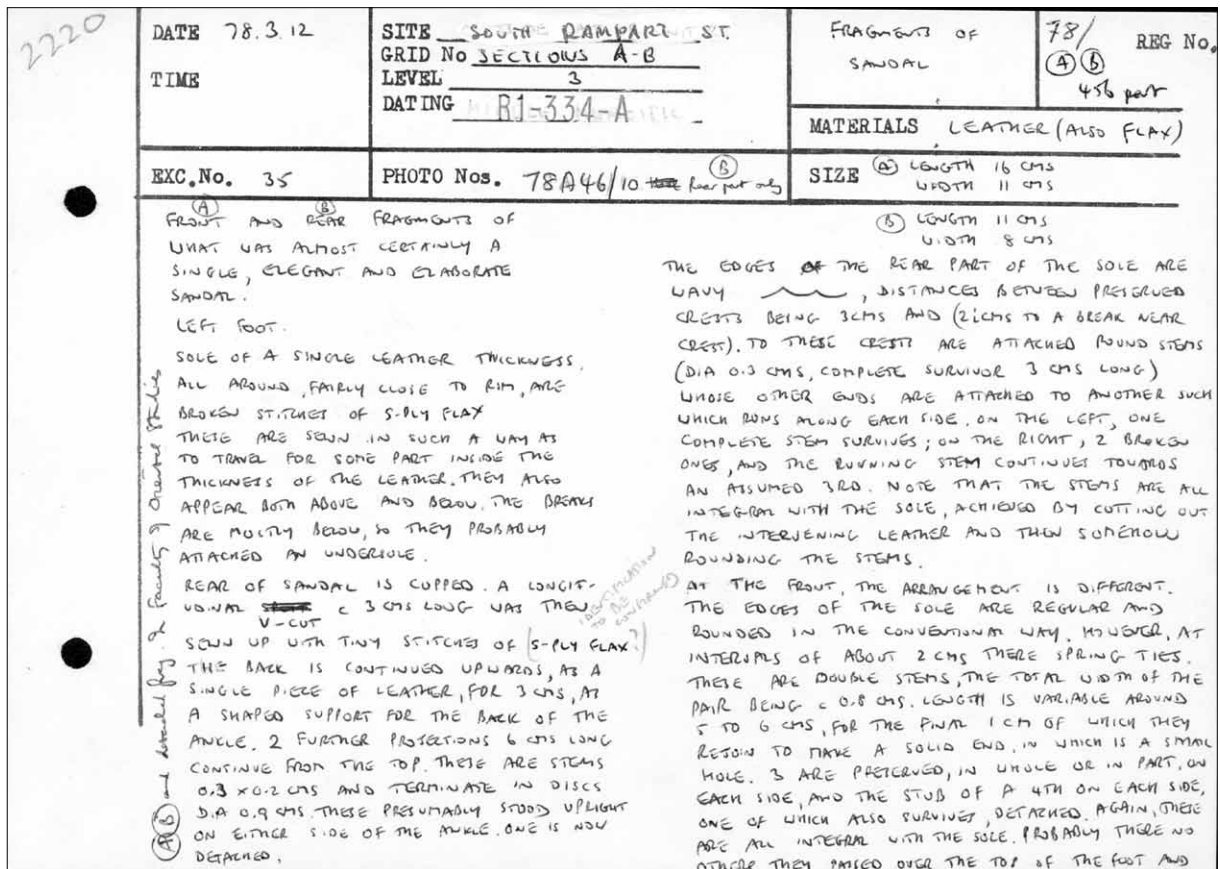 2220
DATE 78.3.12
TIME
SITE SOUTH RAMPART ST.
GRID No SECTIONS A-B
LEVEL 3
DATING B1-334-A
FRAGMENTS OF
SANDAL
78/ REG No.
(A) (B)
456 part
MATERIALS LEATHER (ALSO FLAX)
EXC.No. 35
PHOTO Nos. 78A46/10 (B) Rear part only
SIZE (A) LENGTH 16 CMS
WIDTH 11 CMS
(B) LENGTH 11 CMS
WIDTH 8 CMS
(A) (B)
FRONT AND REAR FRAGMENTS OF
WHAT WAS ALMOST CERTAINLY A
SINGLE, ELEGANT AND ELABORATE
SANDAL.
LEFT FOOT.
SOLE OF A SINGLE LEATHER THICKNESS.
ALL AROUND, FAIRLY CLOSE TO RIM, ARE
BROKEN STITCHES OF S-PLY FLAX
THESE ARE SEWN IN SUCH A WAY AS
TO TRAVEL FOR SOME PART INSIDE THE
THICKNESS OF THE LEATHER. THEY ALSO
APPEAR BOTH ABOVE AND BELOW. THE BREAKS
ARE MOSTLY BELOW, SO THEY PROBABLY
ATTACHED AN UNDERSOLE.
REAR OF SANDAL IS CUPPED. A LONGIT-
UDINAL V-CUT c 3 CMS LONG WAS THEN
SEWN UP WITH TINY STITCHES OF (S-PLY FLAX?)
IDENTIFICATION
TO BE
CONFIRMED
THE BACK IS CONTINUED UPWARDS, AS A
SINGLE PIECE OF LEATHER, FOR 3 CMS, AS
A SHAPED SUPPORT FOR THE BACK OF THE
ANKLE. 2 FURTHER PROJECTIONS 6 CMS LONG
CONTINUE FROM THE TOP. THESE ARE STEMS
0.3 x 0.2 CMS AND TERMINATE IN DISCS
DIA 0.9 CMS. THESE PRESUMABLY STOOD UPRIGHT
ON EITHER SIDE OF THE ANKLE. ONE IS NOW
DETACHED.
(A) (B) and detached frag. Faculty of Oriental Studies
THE EDGES OF THE REAR PART OF THE SOLE ARE
WAVY, DISTANCES BETWEEN PRESERVED
CRESTS BEING 3CMS AND (2½CMS TO A BREAK NEAR
CREST). TO THESE CRESTS ARE ATTACHED ROUND STEMS
(DIA 0.3 CMS, COMPLETE SURVIVOR 3 CMS LONG)
WHOSE OTHER ENDS ARE ATTACHED TO ANOTHER SUCH
WHICH RUNS ALONG EACH SIDE. ON THE LEFT, ONE
COMPLETE STEM SURVIVES; ON THE RIGHT, 2 BROKEN
ONES, AND THE RUNNING STEM CONTINUES TOWARDS
AN ASSUMED 3RD. NOTE THAT THE STEMS ARE ALL
INTEGRAL WITH THE SOLE, ACHIEVED BY CUTTING OUT
THE INTERVENING LEATHER AND THEN SOMEHOW
ROUNDING THE STEMS.
AT THE FRONT, THE ARRANGEMENT IS DIFFERENT.
THE EDGES OF THE SOLE ARE REGULAR AND
ROUNDED IN THE CONVENTIONAL WAY. HOWEVER, AT
INTERVALS OF ABOUT 2 CMS THERE SPRING TIES.
THESE ARE DOUBLE STEMS, THE TOTAL WIDTH OF THE
PAIR BEING c 0.8 CMS. LENGTH IS VARIABLE AROUND
5 TO 6 CMS, FOR THE FINAL 1 CM OF WHICH THEY
REJOIN TO MAKE A SOLID END, IN WHICH IS A SMALL
HOLE. 3 ARE PRESERVED, IN WHOLE OR IN PART, ON
EACH SIDE, AND THE STUB OF A 4TH ON EACH SIDE,
ONE OF WHICH ALSO SURVIVES, DETACHED. AGAIN, THESE
ARE ALL INTEGRAL WITH THE SOLE. PROBABLY THERE NO
OTHERS THEY PASSED OVER THE TOP OF THE FOOT AND